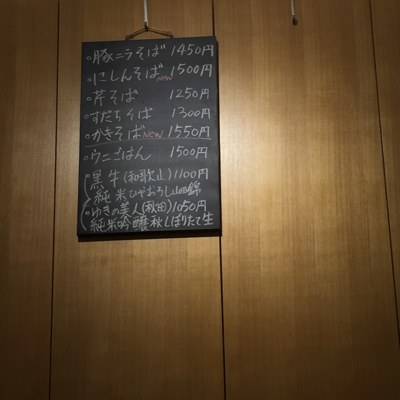 。豚ニラそば 1450円
。にしんそばNEW 1500円
。芹そば 1250円
。すだちそば 1300円
。かきそばNEW 1550円
。ウニごはん 1500円
黒牛(和歌山)1100円
純米ひやおろし山田錦
ゆきの美人(秋田)1050円
純米吟醸秋しぼりたて生